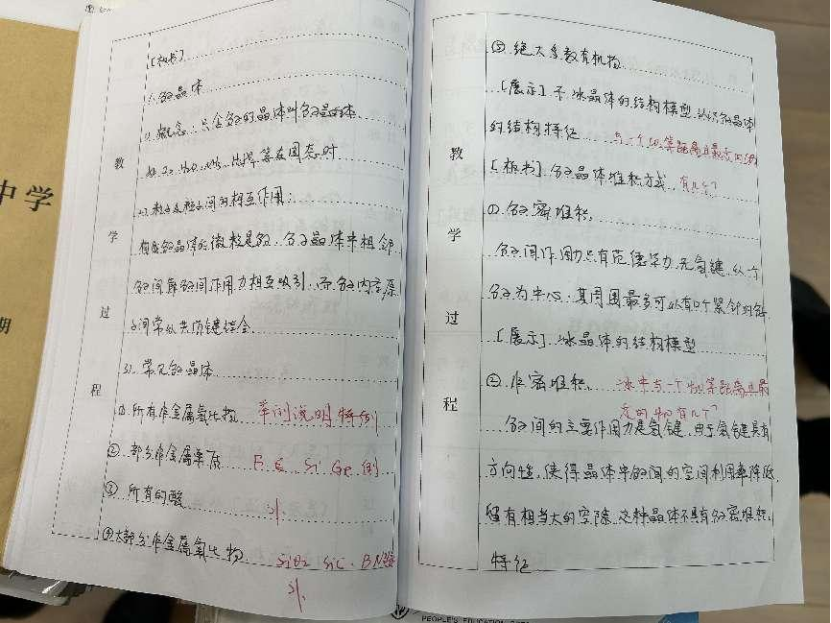 中学
期
教学过程
[板书]
1. 分子晶体
(1) 概念:只含分子的晶体叫分子晶体
如 I₂、H₂O、NH₃、H₃PO₄ 等在固态时
(2) 粒子及粒子间的相互作用:
构成分子晶体的微粒是分子,分子晶体中相邻
分子间靠分子间作用力相互吸引,而分子内各原
子间常以共价键结合
(3) 常见分子晶体
① 所有非金属氢化物 举例说明特例
② 部分非金属单质 Si Ge 例外
③ 所有的酸
④ 大部分非金属氧化物 SiO₂ SiC、BN等
外
教学过程
⑤ 绝大多数有机物
[展示] 干冰晶体的结构模型,认识分子晶体
的结构特征 与一个CO₂等距离且最近的CO₂
[板书] 分子晶体堆积方式 有几个?
① 分子密堆积
分子间作用力只有范德华力,无氢键,以一个
分子为中心,其周围最多可以有12个紧邻的分子
[展示] 冰晶体的结构模型
② 非密堆积 冰中与一个H₂O等距离且最
近的H₂O有几个?
分子间的主要作用力是氢键,由于氢键具有
方向性,使得晶体中分子间的空间利用率降低
留有相当大的空隙,这种晶体不具有分子密堆积
特征
PEOPLE'S EDUCATION